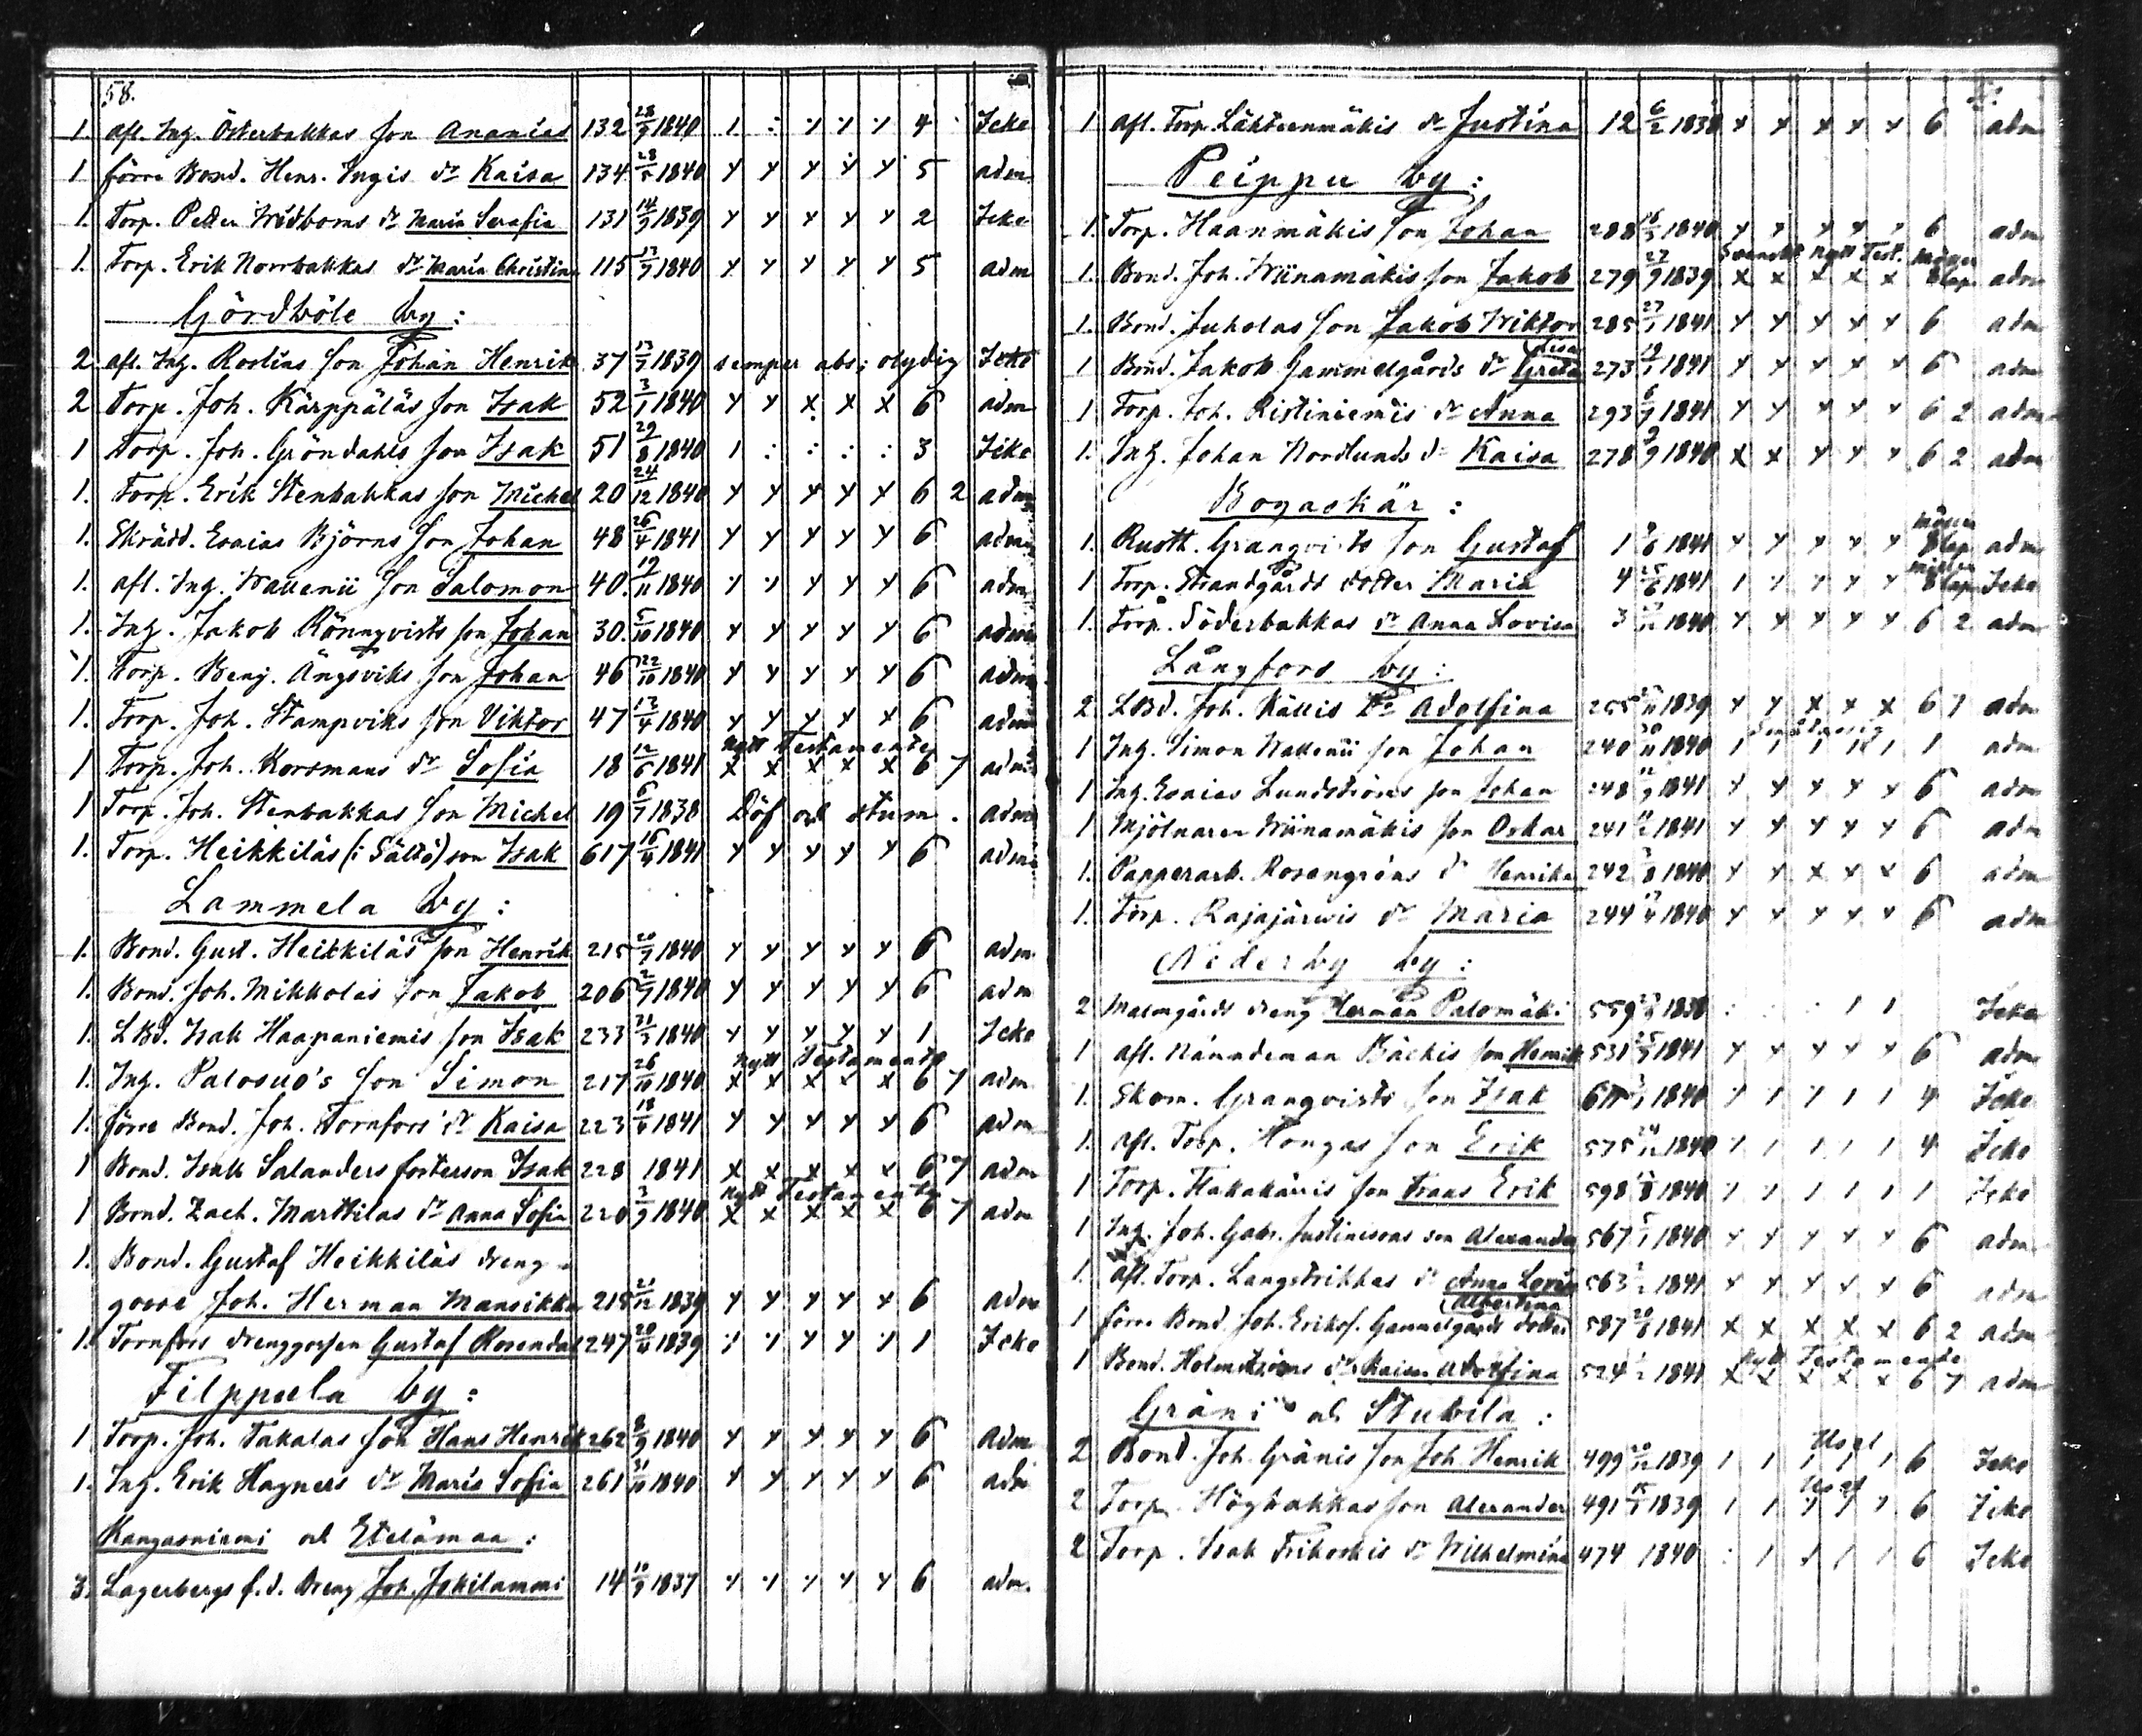 58.
1. afl. Inh. Österbakkas son Ananias 132 28/9 1840 4 Icke
1. förre Bond. Henr. Ingis dr Kaisa 134 1840 y y y y y 5 adm
1. Torp. Petter Widboms dr Maria Serafia 131 14/9 1839 y y y y y 2 Icke
1. Torp. Erik Norrbakkas dr Maria Christina 115 1840 y y y y y 5 adm
Gördböle by:
2 afl. Inh. Rostins son Johan Henrik 37 1839 semper abs; olydig Icke
2 Torp. Joh. Kärppäläs son Isak 52 3/1 1840 y y x x x 6 adm
1 Torp. Joh. Gröndahls son Isak 51 29/8 1840 1 : : : : 3 Icke
1. Torp. Erik Stenbakkas son Michel 20 24/12 1840 y y y y y 6 2 adm
1. Skrädd. Esaias Björns son Johan 48 26/4 1841 y y y y y 6 adm
1. afl. Inh. Wallenii son Salomon 40. 19/11 1840 y y y y y 6 adm
1. Inh. Jakob Rönnqvists son Johan 30. 5/10 1840 y y y y y 6 adm
1. Torp. Benj. Ängsviks son Johan 46 22/10 1840 y y y y y 6 adm
1. Torp. Joh. Stampviks son Viktor 47 13/4 1840 y y y y x 6 adm
nytt Testamente
1 Torp. Joh. Korsmans dr Sofia 18 12/6 1841 x x x x x 6 7 adm
1 Torp. Joh. Stenbakkas son Michel 19 6/7 1838 Döf och stum. adm
1. Torp. Heikkiläs (i Sältö) son Isak 617 16/4 1841 y y y y y 6 adm
Lammela by:
1. Bond. Gust. Heikkiläs son Henrik 215 20/7 1840 y y y y y 6 adm
1. Bond. Joh. Mikkolas son Jakob 206 2/7 1840 y y y y y 6 adm
1. LBd. Isak Haapaniemis son Isak 233 31/3 1840 y y y y y 1 Icke
nytt Testamente
1. Inh. Palosuo's son Simon 217 26/10 1840 x x x x x 6 7 adm
1. förre Bond. Joh. Tornfors' dr Kaisa 223 1841 y y y y y 6 adm
1 Bond. Isak Salanders fosterson Isak 228 1841 x x x x x 6 7 adm
nytt Testamente
1 Bond. Zach. Marttilas dr Anna Sofia 220 3/9 1840 x x x x x 6 7 adm
1. Bond. Gustaf Heikkiläs dreng
gosse Joh. Herman Mansikka 215 21/12 1839 y y y y y 6 adm
1. Tornfors drenggossen Gustaf Rosendal 247 1839 1 Icke
Filppula by:
1 Torp. Joh. Takalas son Hans Henrik 262 8/9 1840 y y y y y 6 adm
1. Inh. Erik Hagners dr Maria Sofia 261 31/10 1840 y y y y y 6 adm
Kangasniemi och Etelämaa:
3. Lagerbergs f.d. dreng Joh. Jokilammi 14 10/9 1837 y y y y y 6 adm.
1 afl. Torp. Läkteenmäkis dr Justina 12 6/2 1838 y y y y y 6 adm
Peippu by:
1. Torp. Haanmäkis son Johan 288 1840 y y y y y 6 adm
Svenskt nytt Test. mässl.
1. Bond. Joh. Wiinamäkis son Jakob 279 27/9 1839 x x x x x adm
1. Bond. Juholas son Jakob Wiktor 285 1841 y y y y y 6 adm
Lisa
1 Bond. Jakob Gammelgårds dr Greta 273 1841 y y y y y 6 adm
1 Torp. Joh. Ristiniemis dr Anna 293 1841 y y y y y 6 2 adm
1. Inh. Johan Nordlunds dr Kaisa 278 1840 x x y y y 6 2 adm
Bogaskär:
1. Rustth. Granqvists son Gustaf 1 1841 y y y y y adm
1 Torp. Strandgårds dotter Maria 4 1841 1 y y y y Icke
1. Torp. Söderbakkas dr Anna Lovisa 3 1840 y y y y y 6 2 adm
Långfors by:
2 LBd. Joh. Källis dr Adolfina 255 1839 y y x x x 6 7 adm
1 Inh. Simon Wallenii son Johan 240 1840 1 1 1 1 1 1 adm
1 Inh. Esaias Lundströms son Johan 248 1841 y y y y y 6 adm
1 Mjölnaren Wiinamäkis son Oskar 241 1841 y y y y y 6 adm
1. Papperarb. Rosengréns dr Henrika 242 1840 y y x x x 6 adm
1. Torp. Rajajärwis dr Maria 244 1840 y y y y y 6 adm
Nederby by:
2 Malmgårds dreng Herman Palomäki 559 1838 : : : 1 1 Icke
1 afl. Nämndeman Bäckis son Henrik 531 1841 y y y y y 6 adm
1. Skom. Granqvists son Isak 1840 4 Icke
1. afl. Torp. Hongas son Erik 575 1840 4 Icke
1 Torp. Hakakärris son Frans Erik 598 1840 1 Icke
1 Inh. Joh. Gabr. Justinisons son Alexander 567 1840 y y y y y 6 adm
1. afl. Torp. Langstrikkas dr Anna Lovisa 563 1841 y y y y y 6 adm
Albertina
1 förre Bond. Joh. Eriks. Gammelgårds dotter 587 1841 x x x x x 6 2 adm
Nytt Testamente
1 Bond. Holmströms dr Kaisa Adolfina 524 1841 x x x x x 6 7 adm
Gräni och Stubila:
2 Bond. Joh. Gränis son Joh. Henrik 499 1839 1 1 1 1 1 6 Icke
2 Torp. Högbakkas son Alexander 491 1839 6 Icke
2 Torp. Isak Frikorkis dr Wilhelmina 474 1840 6 Icke